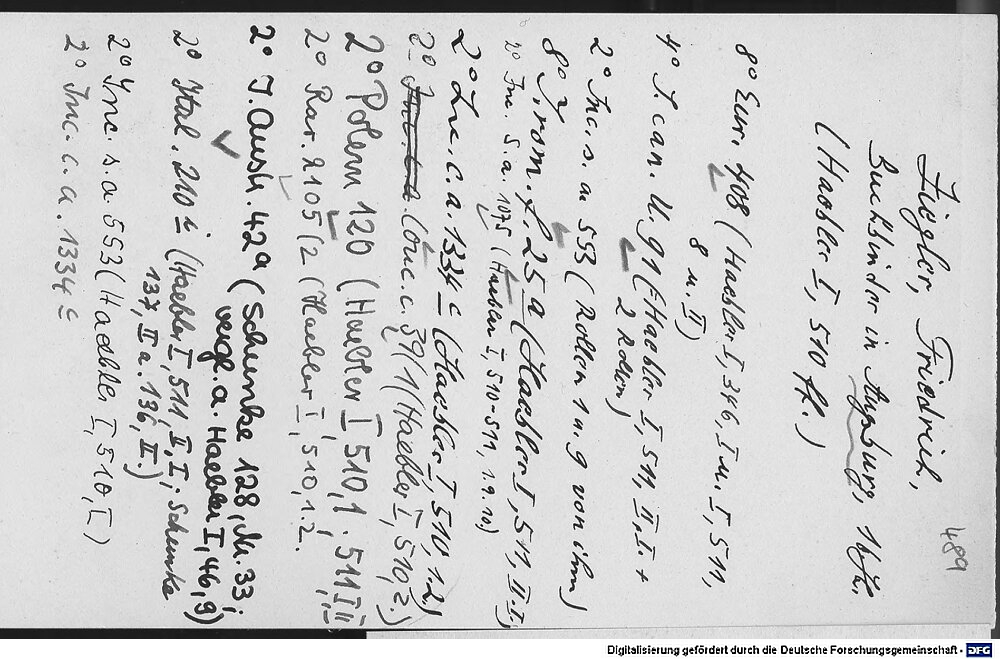 489
Ziegler, Friedrich,
Buchbinder in Augsburg, 16. Jh.
(Haebler I, 510 ff.)
8° Eur. 408 (Haebler I, 346, I u. I, 511,
8 u. II)
4° J. can. U. 91 (Haebler I, 511, II, I. +
2 Rollen)
2° Inc. s. a. 553 (Rollen 1 u. 9 von ihm)
8° J. rom. f. 25 a (Haebler I, 511, II. I.)
2° Inc. s. a. 1075 (Haebler I, 510-511, 1. 9. 10.)
2° Inc. c. a. 1334 c (Haebler I, 510, 1.2)
2° Conc. c. 39/1 (Haebler I, 510, 2.)
2° Polem 120 (Haebler I 510, 1; 511 I, II
2° Rar. 2105/2 (Haebler I, 510, 1. 2.
2° J. Aush. 42 a (Schunke 128, Nr. 33;
vergl. a. Haebler I, 46, 9)
2° Ital. 210 i (Haebler I, 511, II, I; Schunke
137, II a. 136, II.)
2° Inc. s. a. 553 (Haebler I, 510, I)
2° Inc. c. a. 1334 c
Digitalisierung gefördert durch die Deutsche Forschungsgemeinschaft - DFG